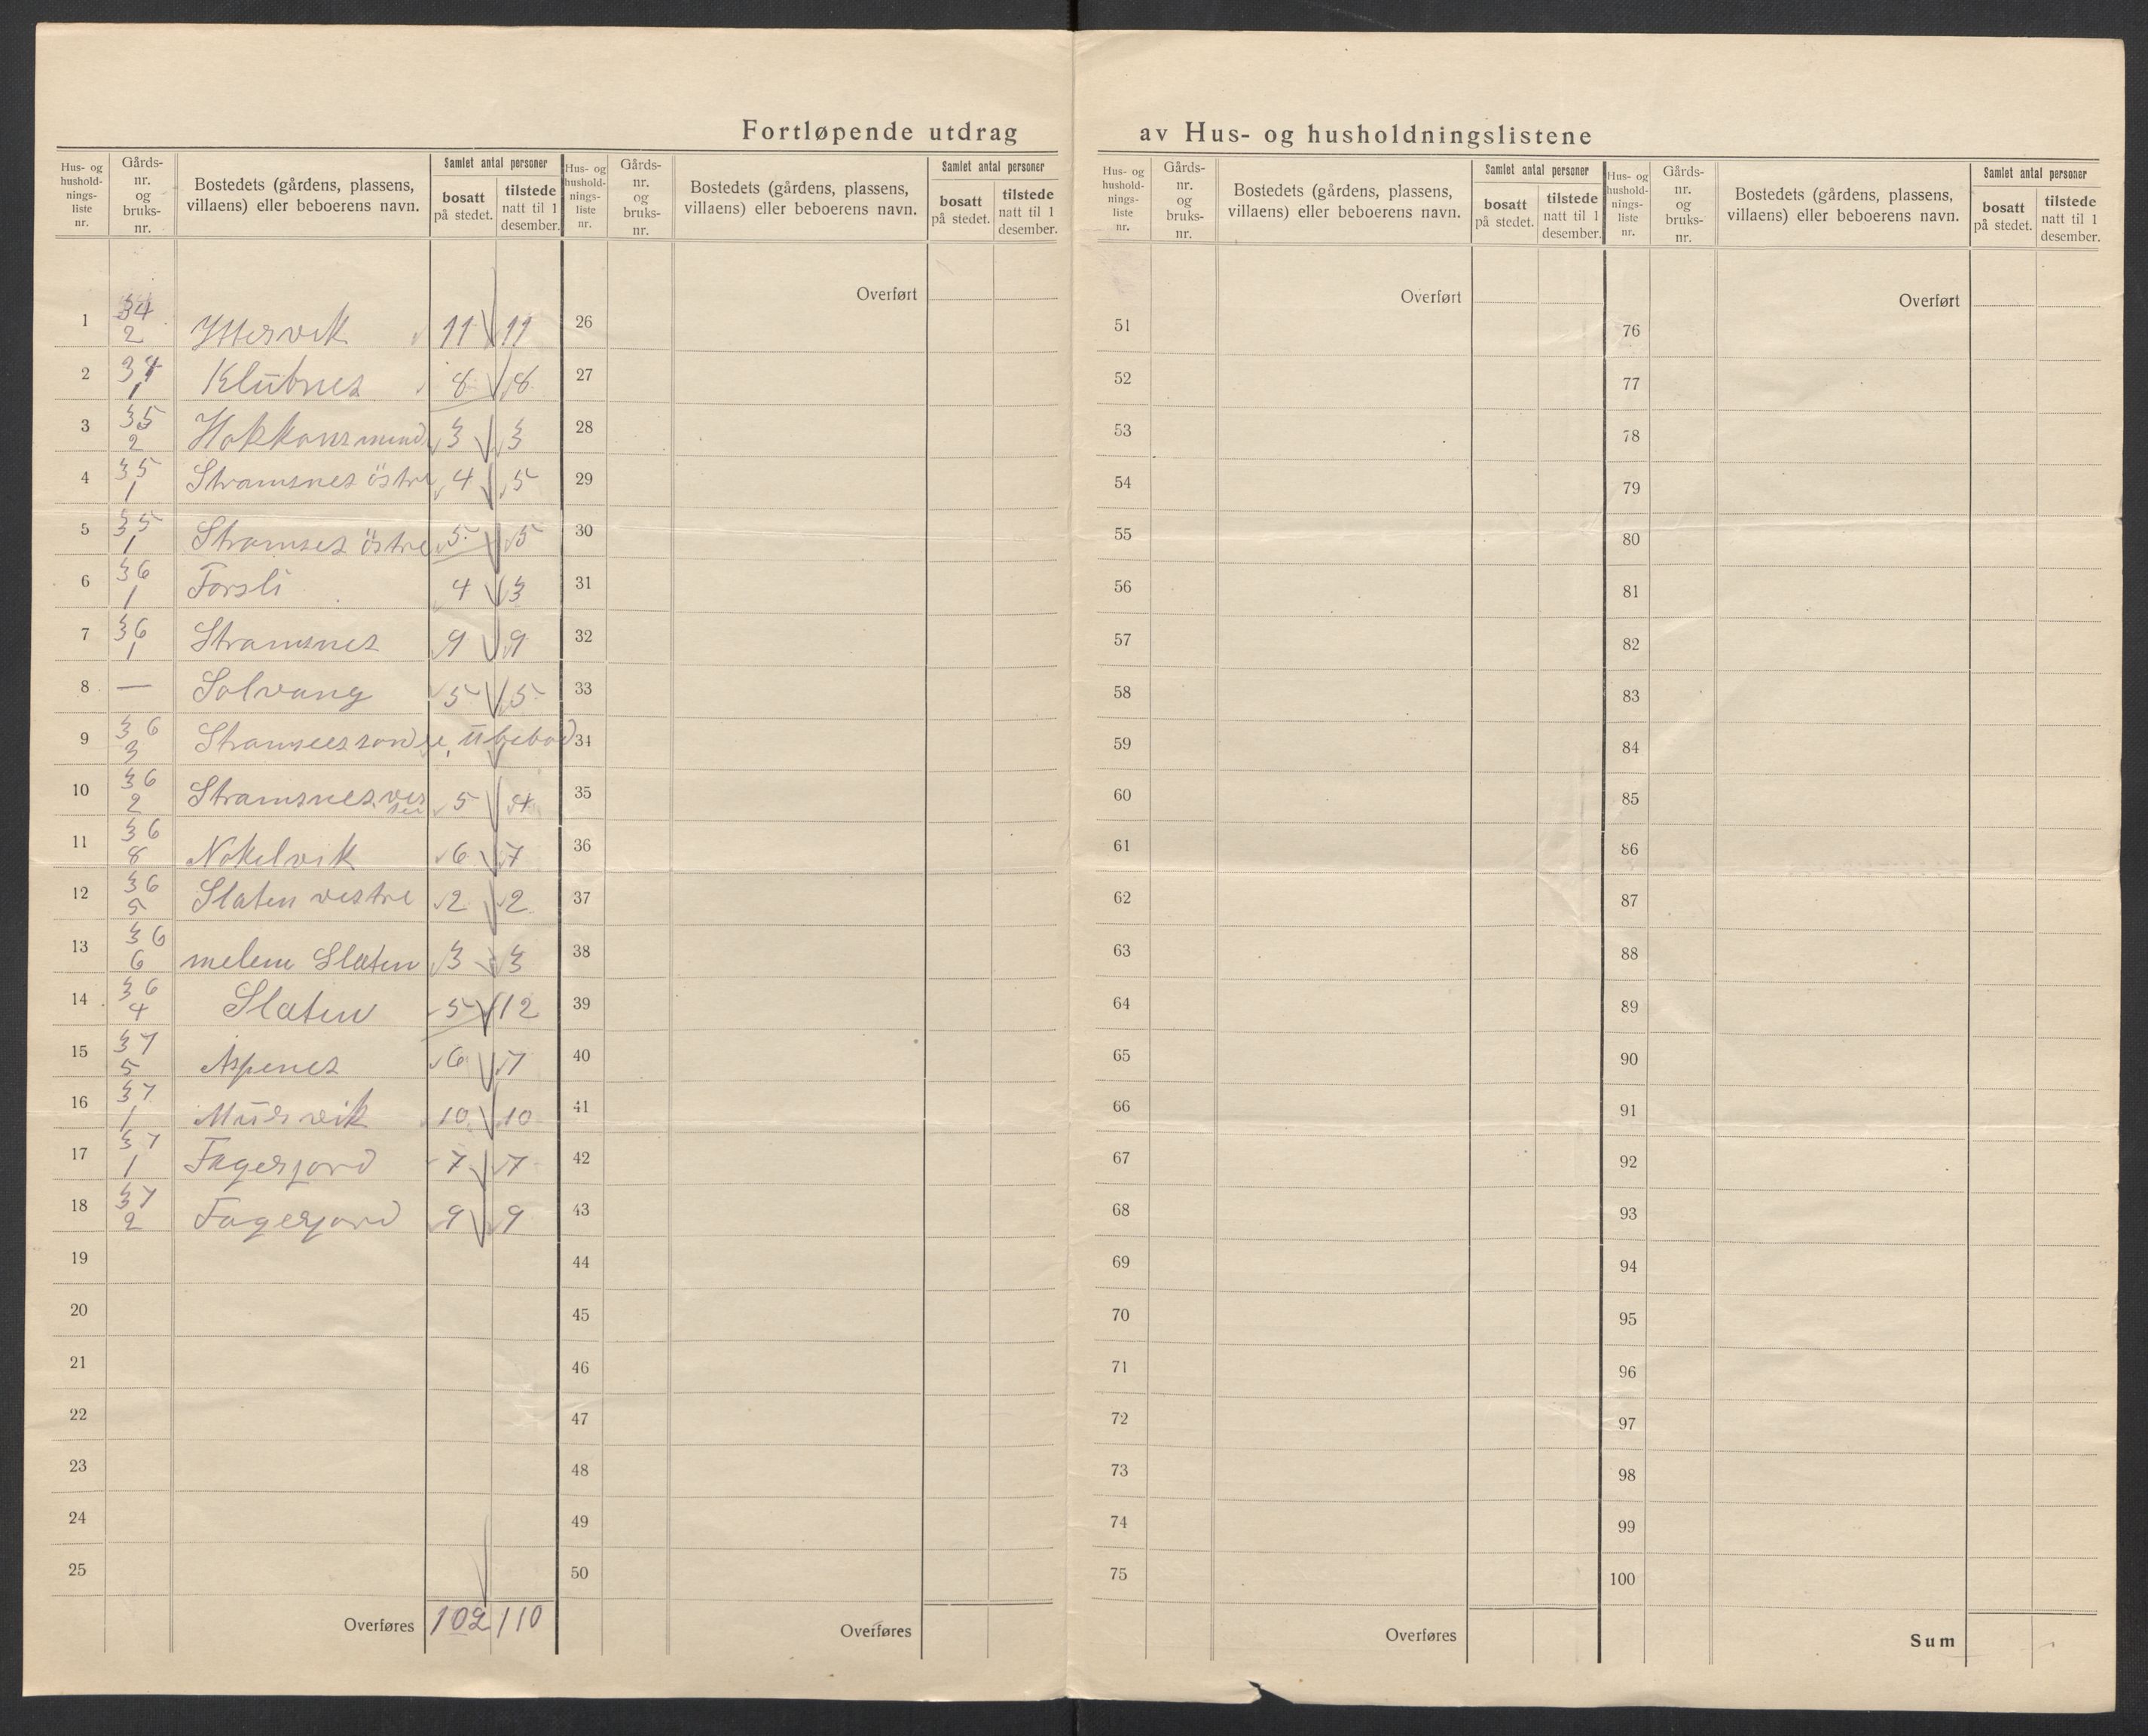 Fortløpende utdrag av Hus- og husholdningslistene
Hus- og husholdningsliste nr. | Gårdsnr. og bruksnr. | Bostedets (gårdens, plassens, villaens) eller beboerens navn. | Samlet antal personer | bosatt på stedet. | tilstede natt til 1 desember.
Hus- og husholdningsliste nr. | Gårdsnr. og bruksnr. | Bostedets (gårdens, plassens, villaens) eller beboerens navn. | Samlet antal personer | bosatt på stedet. | tilstede natt til 1 desember.
Hus- og husholdningsliste nr. | Gårdsnr. og bruksnr. | Bostedets (gårdens, plassens, villaens) eller beboerens navn. | Samlet antal personer | bosatt på stedet. | tilstede natt til 1 desember.
Hus- og husholdningsliste nr. | Gårdsnr. og bruksnr. | Bostedets (gårdens, plassens, villaens) eller beboerens navn. | Samlet antal personer | bosatt på stedet. | tilstede natt til 1 desember.
1 34/2 Yttervik 11 11
2 34/1 Klubnes 8 8
3 35/2 3 3
4 35/1 Stramsnes östre 4 5
5 35/1 Stramses östre 5 5
6 36/1 Forsli 4 3
7 36/1 Stramsnes 9 9
8 — Solvang 5 5
9 36/3
10 36/2 Stramsnes 5 4
11 36/8 Nokelvik 6 7
12 36/5 Slaten vestre 2 2
13 36/6 melem Slaten 3 3
14 36/4 Slaten 5 12
15 37/5 Aspenes 6 7
16 37/1 10 10
17 37/1 Fagerjord 7 7
18 37/2 Fagerjord 9 9
19
20
21
22
23
24
25
Overføres 102 110
Overført
26
27
28
29
30
31
32
33
34
35
36
37
38
39
40
41
42
43
44
45
46
47
48
49
50
Overføres
Overført
51
52
53
54
55
56
57
58
59
60
61
62
63
64
65
66
67
68
69
70
71
72
73
74
75
Overføres
Overført
76
77
78
79
80
81
82
83
84
85
86
87
88
89
90
91
92
93
94
95
96
97
98
99
100
Sum